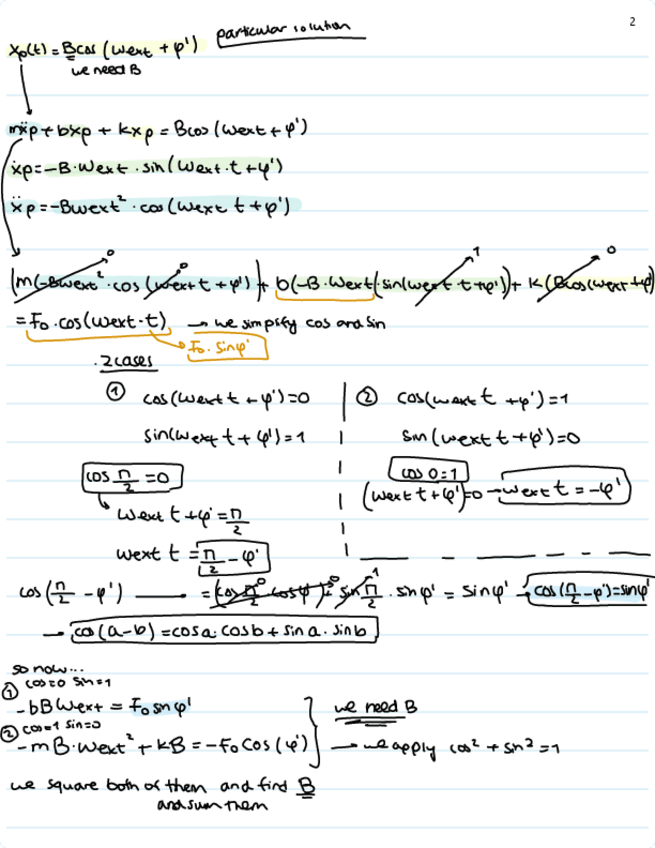 2
particular solution
xp(t) = Bcos (wext + φ')
we need B
mẍp + bẋp + kxp = Bcos (wext + φ')
ẋp = -B·wext · sin (wext·t + φ')
ẍp = -Bwext² · cos (wext t + φ')
(m(-Bwext² · cos (wext t + φ') + b(-B·wext(·sin(wext t + φ')) + k(Bcos(wext + φ')
0 0 1 0
= F₀·cos(wext·t) → we simplify cos and sin
F₀· sinφ'
. 2 cases
① cos (wext t + φ') = 0
sin(wext t + φ') = 1
cos π/2 = 0
wext t + φ' = π/2
wext t = π/2 - φ'
② cos(wext t + φ') = 1
sin (wext t + φ') = 0
cos 0 = 1
(wext t + φ') = 0 → wext t = -φ'
cos (π/2 - φ') —— = (cos π/2 cos φ') + sin π/2 · sin φ' = sin φ' → cos(π/2 - φ') = sinφ'
0 0 1
→ cos (a-b) = cosa · cosb + sin a · sin b
so now...
① cos=0 sin=1
- bBwext = F₀ sin φ'
② cos=1 sin=0
- mB·wext² + kB = -F₀ cos (φ')
we need B
→ we apply cos² + sin² = 1
we square both of them and find B
and sum them